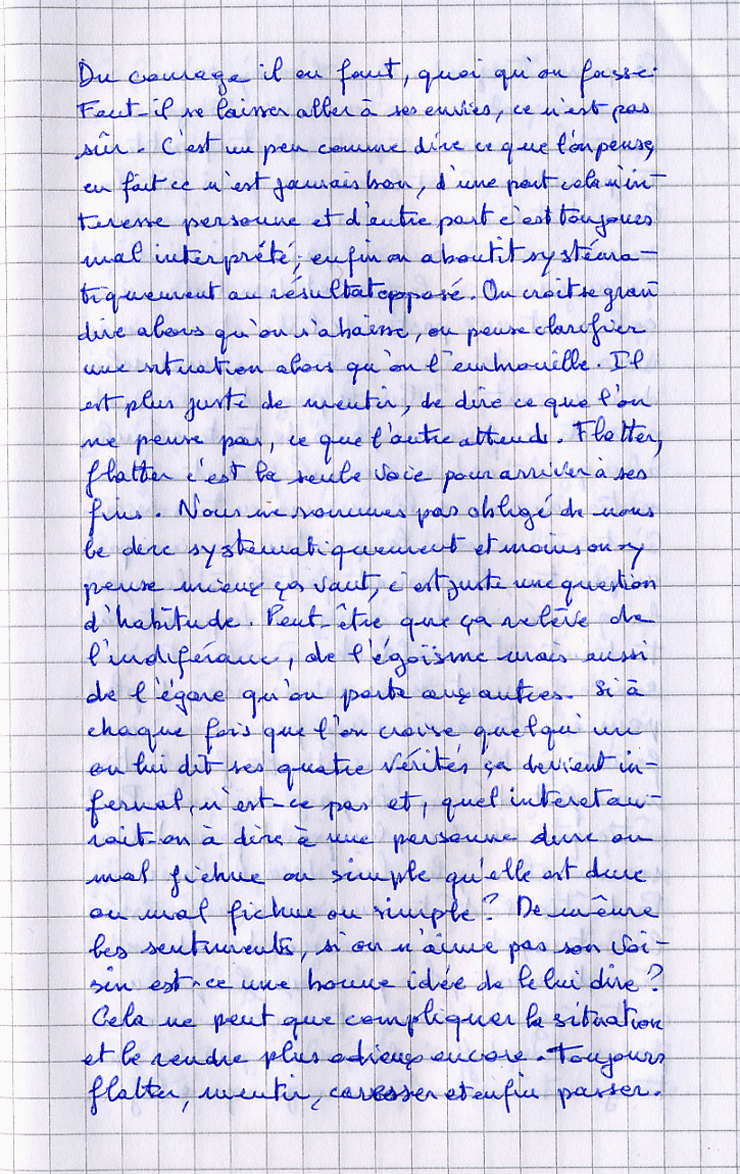 Du courage il en faut, quoi qu'on fasse.
Faut-il se laisser aller à ses envies, ce n'est pas
sûr. C'est un peu comme dire ce que l'on pense,
en fait ce n'est jamais bon, d'une part cela n'in-
teresse personne et d'autre part c'est toujours
mal interprété, enfin on aboutit systéma-
tiquement au résultat opposé. On croit se gran
dire alors qu'on s'abaisse, on pense clarifier
une situation alors qu'on l'embrouille. Il
est plus juste de mentir, de dire ce que l'on
ne pense pas, ce que l'autre attend. Flatter,
flatter c'est la seule voie pour arriver à ses
fins. Nous ne sommes pas obligé de nous
le dire systematiquement et moins on y
pense mieux ça vaut, c'est juste une question
d'habitude. Peut-être que ça relève de
l'indiférance, de l'égoïsme mais aussi
de l'égare qu'on porte aux autres. Si à
chaque fois que l'on croise quelqu'un
on lui dit ses quatre vérités ça devient in-
fernal, n'est-ce pas et, quel interet au-
rait-on à dire à une personne dure ou
mal fichue ou simple qu'elle est dure
ou mal fichue ou simple? De même
les sentiments, si on n'aime pas son voi-
sin est-ce une bonne idée de le lui dire?
Cela ne peut que compliquer la situation
et la rendre plus odieux encore. Toujours
flatter, mentir, caresser et enfin passer.